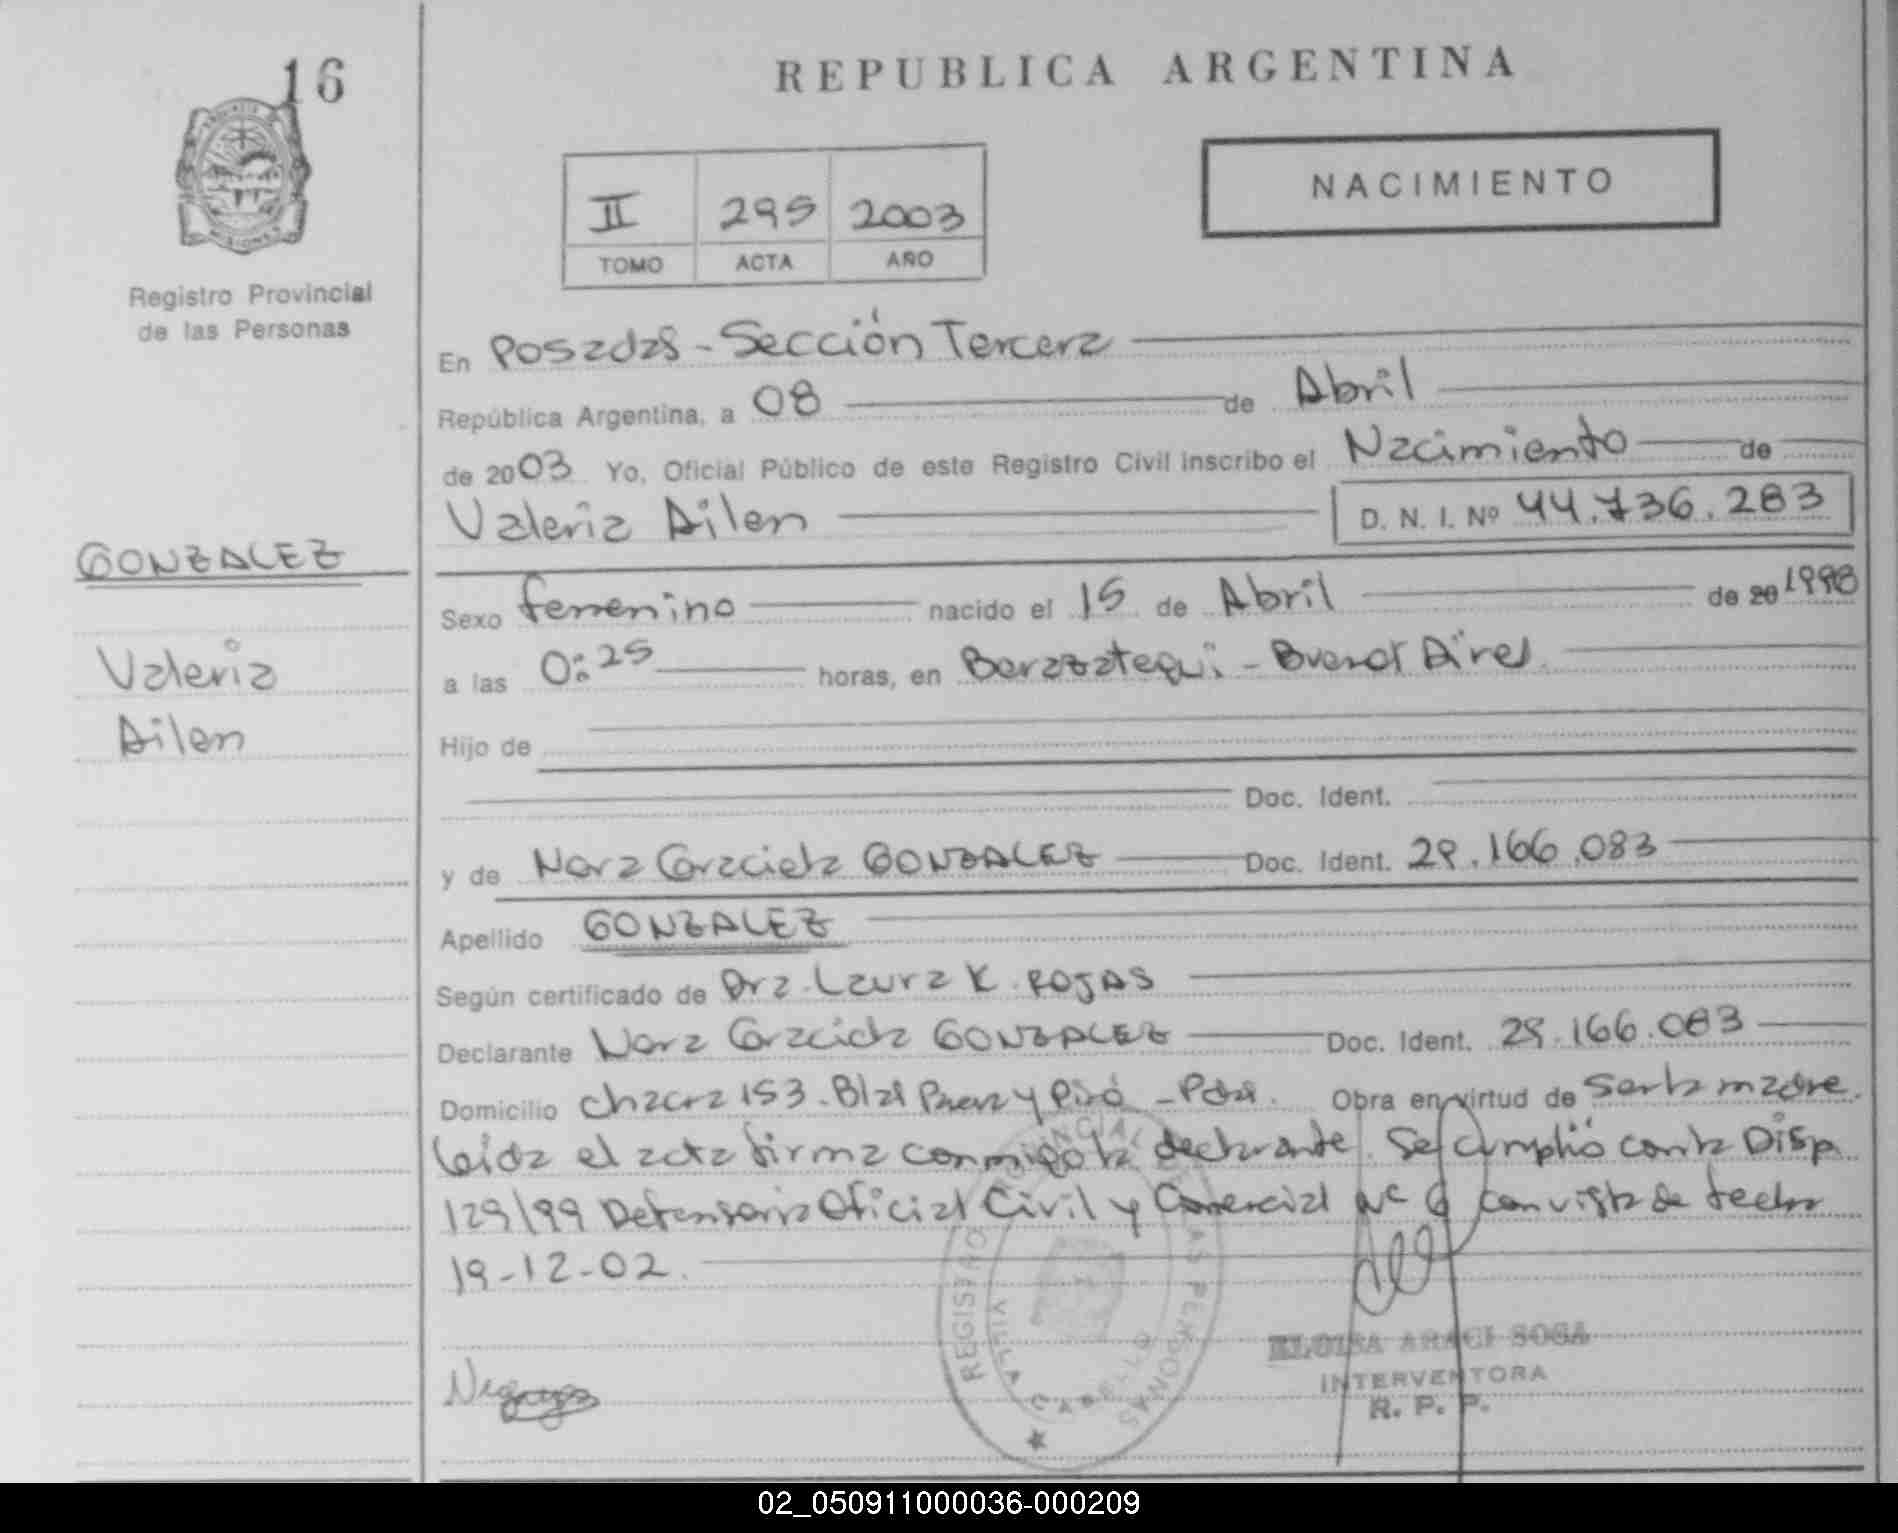 16
REPUBLICA ARGENTINA
NACIMIENTO
II 295 2003
TOMO ACTA AÑO
MISIONES
Registro Provincial
de las Personas
En Posadas - Sección Tercera
República Argentina, a 08 de Abril
de 2003 Yo, Oficial Público de este Registro Civil inscribo el Nacimiento de
Valeria Ailen D. N. I. Nº 44.736.283
GONZALEZ
Valeria
Ailen
Sexo femenino nacido el 15 de Abril de 20 1998
a las 0:25 horas, en Berazategui - Buenos Aires
Hijo de
Doc. Ident.
y de Nora Graciela GONZALEZ Doc. Ident. 29.166.083
Apellido GONZALEZ
Según certificado de Dra. Laura K. ROJAS
Declarante Nora Graciela GONZALEZ Doc. Ident. 29.166.083
Domicilio Chacra 153 - Blas y - Pdas. Obra en virtud de ser la madre.
Leida el acta firma conmigo la declarante. Se cumplió con la Disp.
129/99 Defensoria Oficial Civil y Comercial Nº 6 con vista de fecha
19-12-02.
REGISTRO PROVINCIAL DE LAS PERSONAS
VILLA CABELLO
ELOISA ARACI SOSA
INTERVENTORA
R. P. P.
02_050911000036-000209